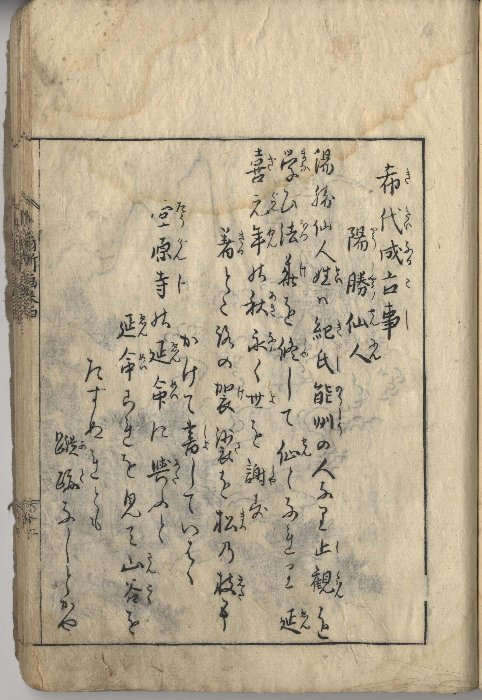 希代成古事
陽勝仙人
陽勝仙人姓ハ紀氏能州の人なり止観を
学ひ法華を修して仙となれり延
喜元年の秋永く世を謝す
着ところの袈裟を松の枝に
かけて書していはく
堂原寺の延命に与ふと
延命これを見て山谷を
たずぬれとも
蹤跡なしとかや